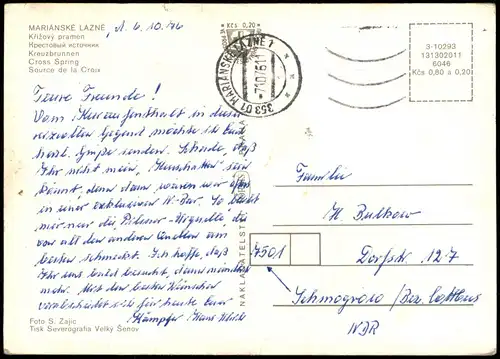 MARIÁNSKÉ LÁZNĚ
Křížový pramen
Крестовый источник
Kreuzbrunnen
Cross Spring
Source de la Croix
d. 6.10.76
Kčs 0,20
353 01 MARIÁNSKÉ LÁZNĚ 1
-7.10.76
3-10293
131302011
6046
Kčs 0,80 a 0,20
Teure Freunde!
Vom Kuraufenthalt in dieser
reizvollen Gegend möchte ich Euch
herzl. Grüße senden. Schade, daß
Ihr nicht mein
könnt, denn dann wären wir öfter
in einer exklusiven N-Bar. So bleibt
mir nur die Pilsner-Urquelle die
von all den anderen Quellen am
besten schmeckt. Ich hoffe, daß
Ihr uns bald besucht, dann
mehr. Mit den besten Wünschen
verabschiedet sich für heute Euer
Kämpfer Hans
Foto S. Zajíc
Tisk Severografia Velký Šenov
NAKLADATELSTVÍ
Familie
H. Bulkow
7501
Dorfstr. 127
Schmogrow (Bez. Cottbus
NDR